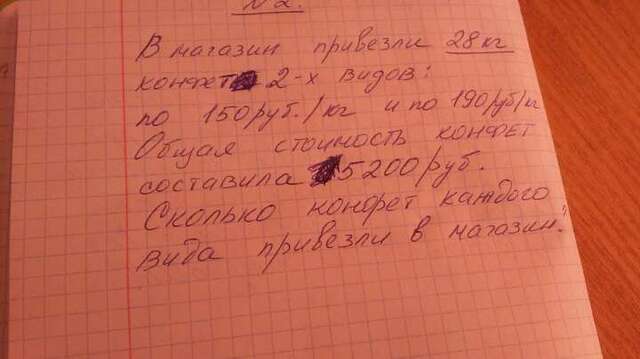 №2.
В магазин привезли 28 кг
конфет 2-х видов:
по 150 руб./кг и по 190 руб/кг
Общая стоимость конфет
составила 5200 руб.
Сколько конфет каждого
вида привезли в магазин?